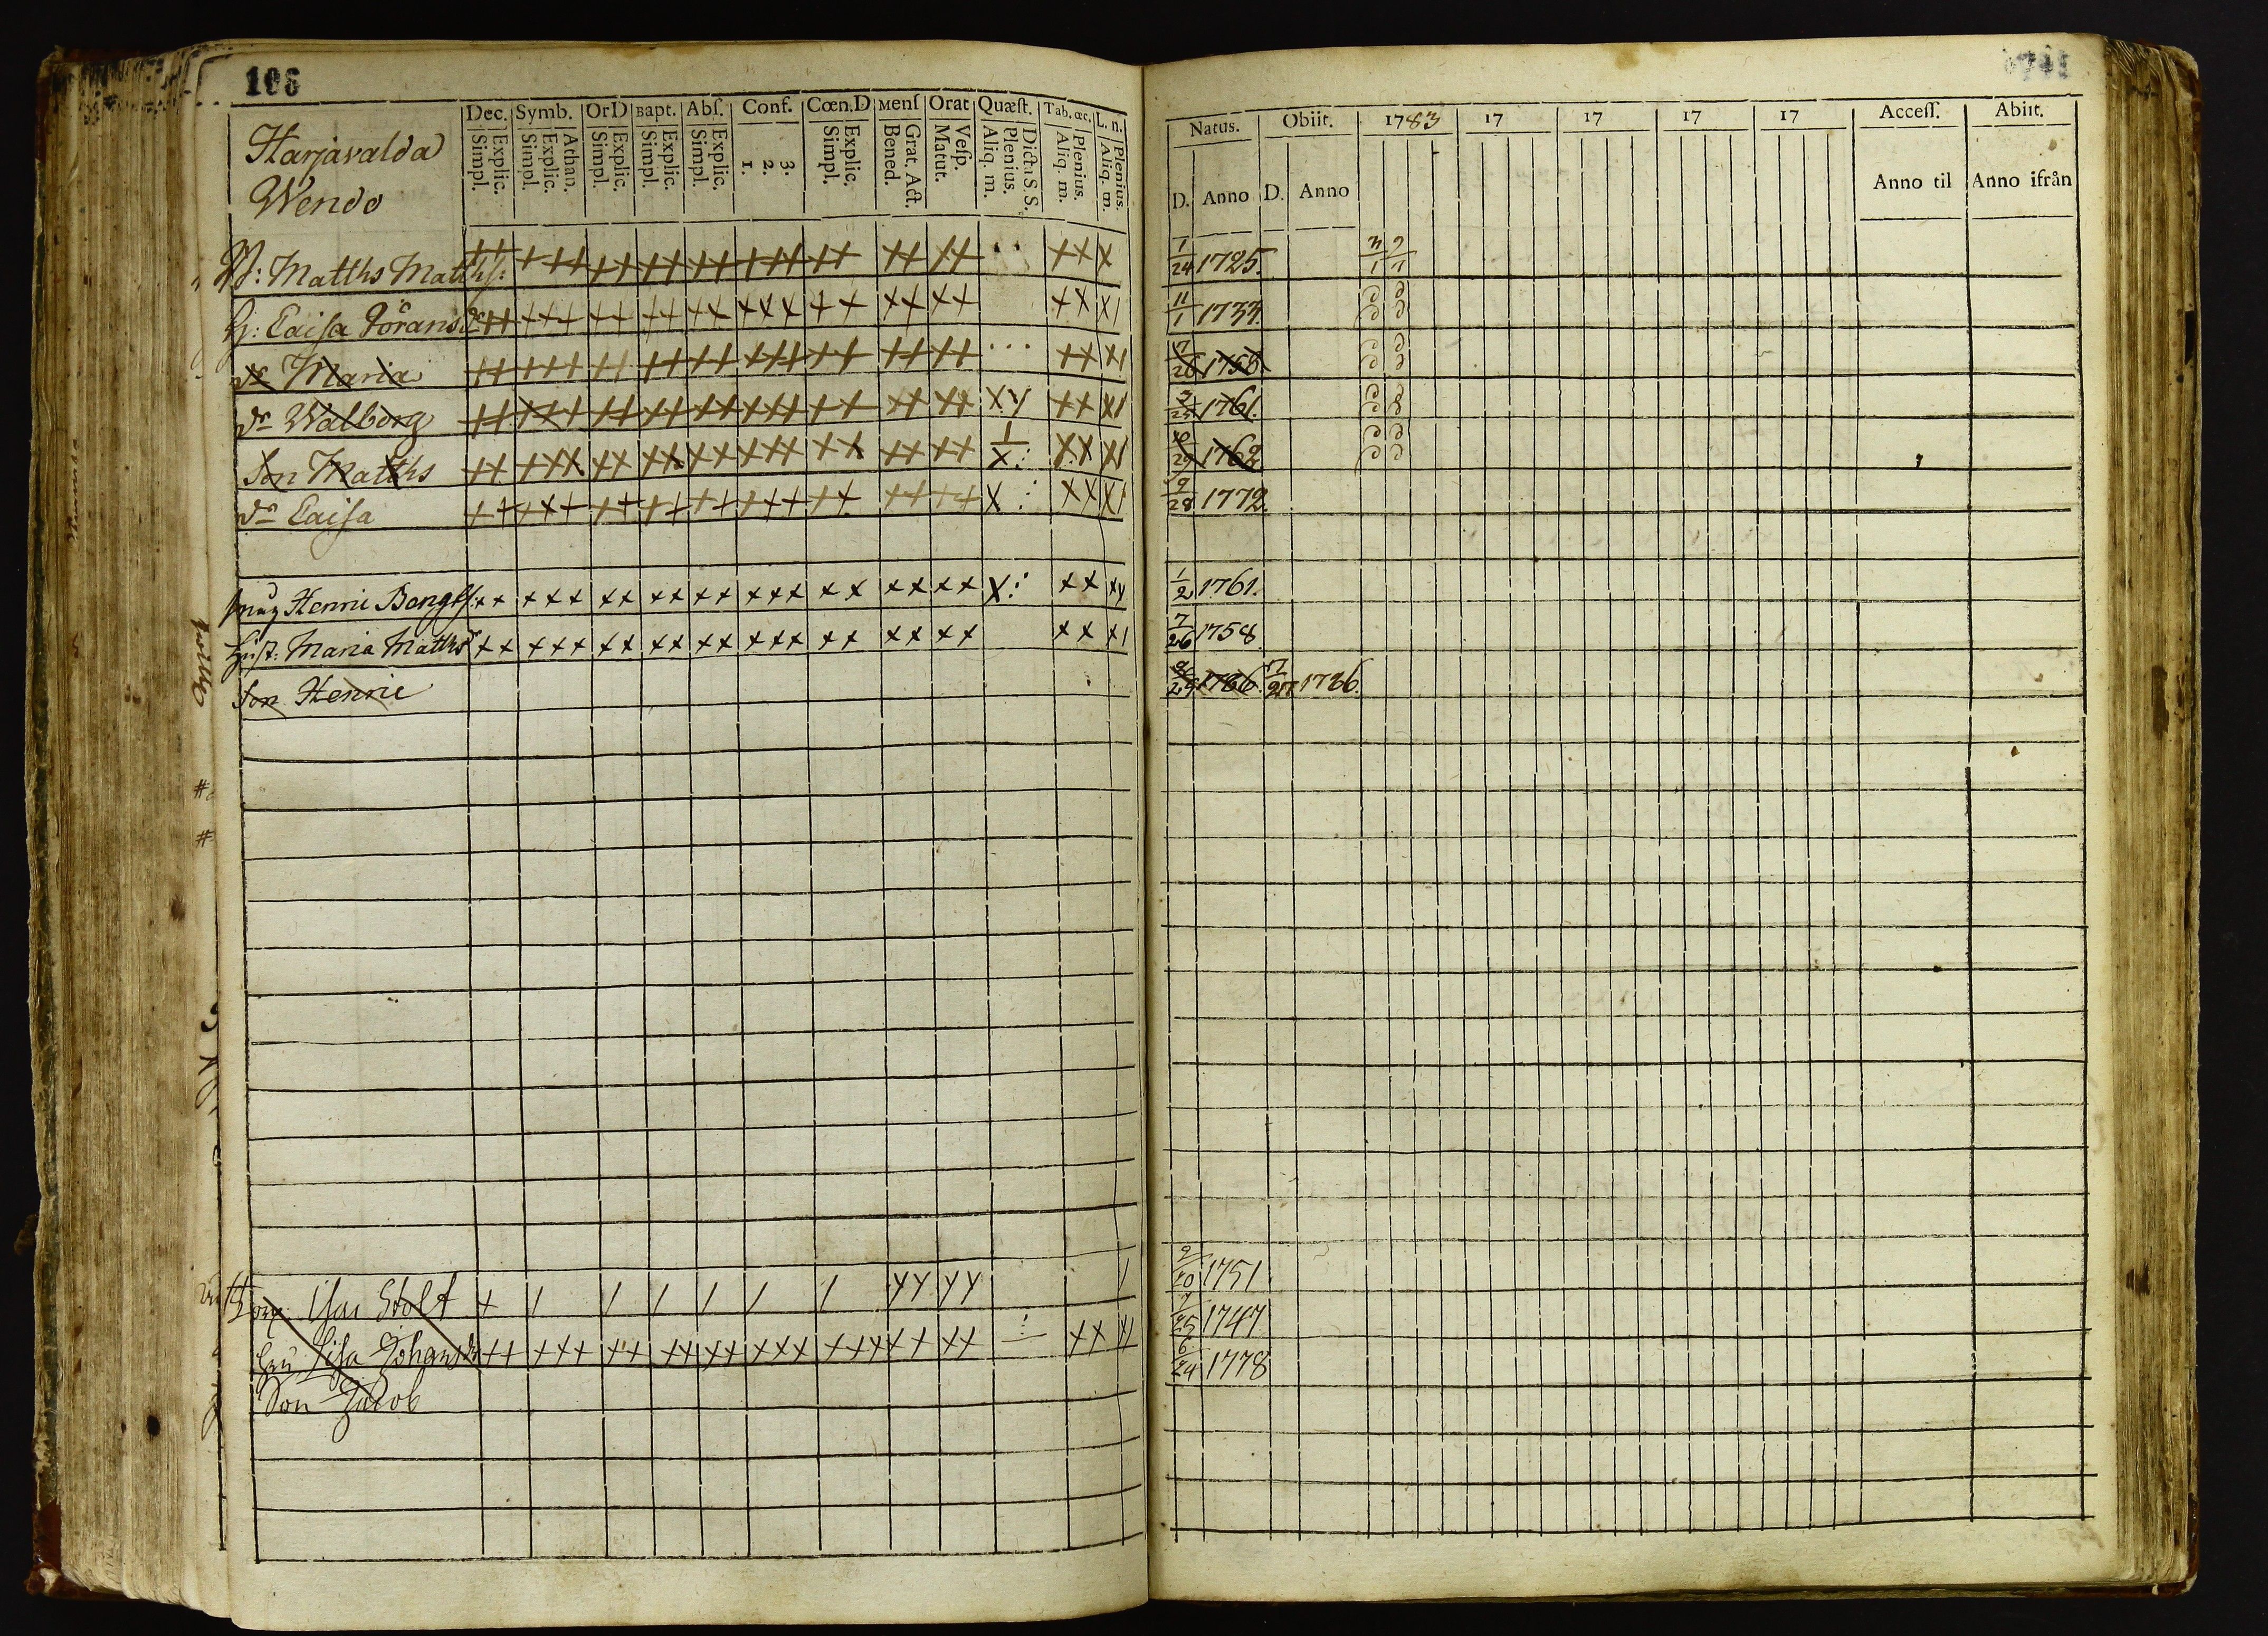 106
Harjavalda
Wendo
Dec. Symb. OrD Bapt. Abſ. Conf. Cœn.D Menſ Orat Quæſt. Tab.œc. L. n.
Explic. Simpl. Athan. Explic. Simpl. Explic. Simpl. Explic. Simpl. Explic. Simpl. 3. 2. 1. Explic. Simpl. Grat. Act. Bened. Veſp. Matut. Dicta S S. Plenius. Aliq. m. Plenius. Aliq. m. Plenius. Aliq. m.
Matths Matths:
H: Caiſa Jörans dr
dr Maria
dr Walborg
Son Matths
dr Caiſa
Henric Bengtſ:
Huſt: Maria Matths
Son Henric
Stolt
Liſa Johans dr
Son Jacob
Natus. Obiit. 1783 17 17 17 17 Acceſſ. Abiit.
D. Anno D. Anno Anno til Anno ifrån
1/24 1725.
11/1 1733.
7/26 1758.
1761.
1762
9/28 1772.
1/2 1761.
7/26 1758
1786. 7/27 1786.
2/20 1751
7/25 1747
6/24 1778